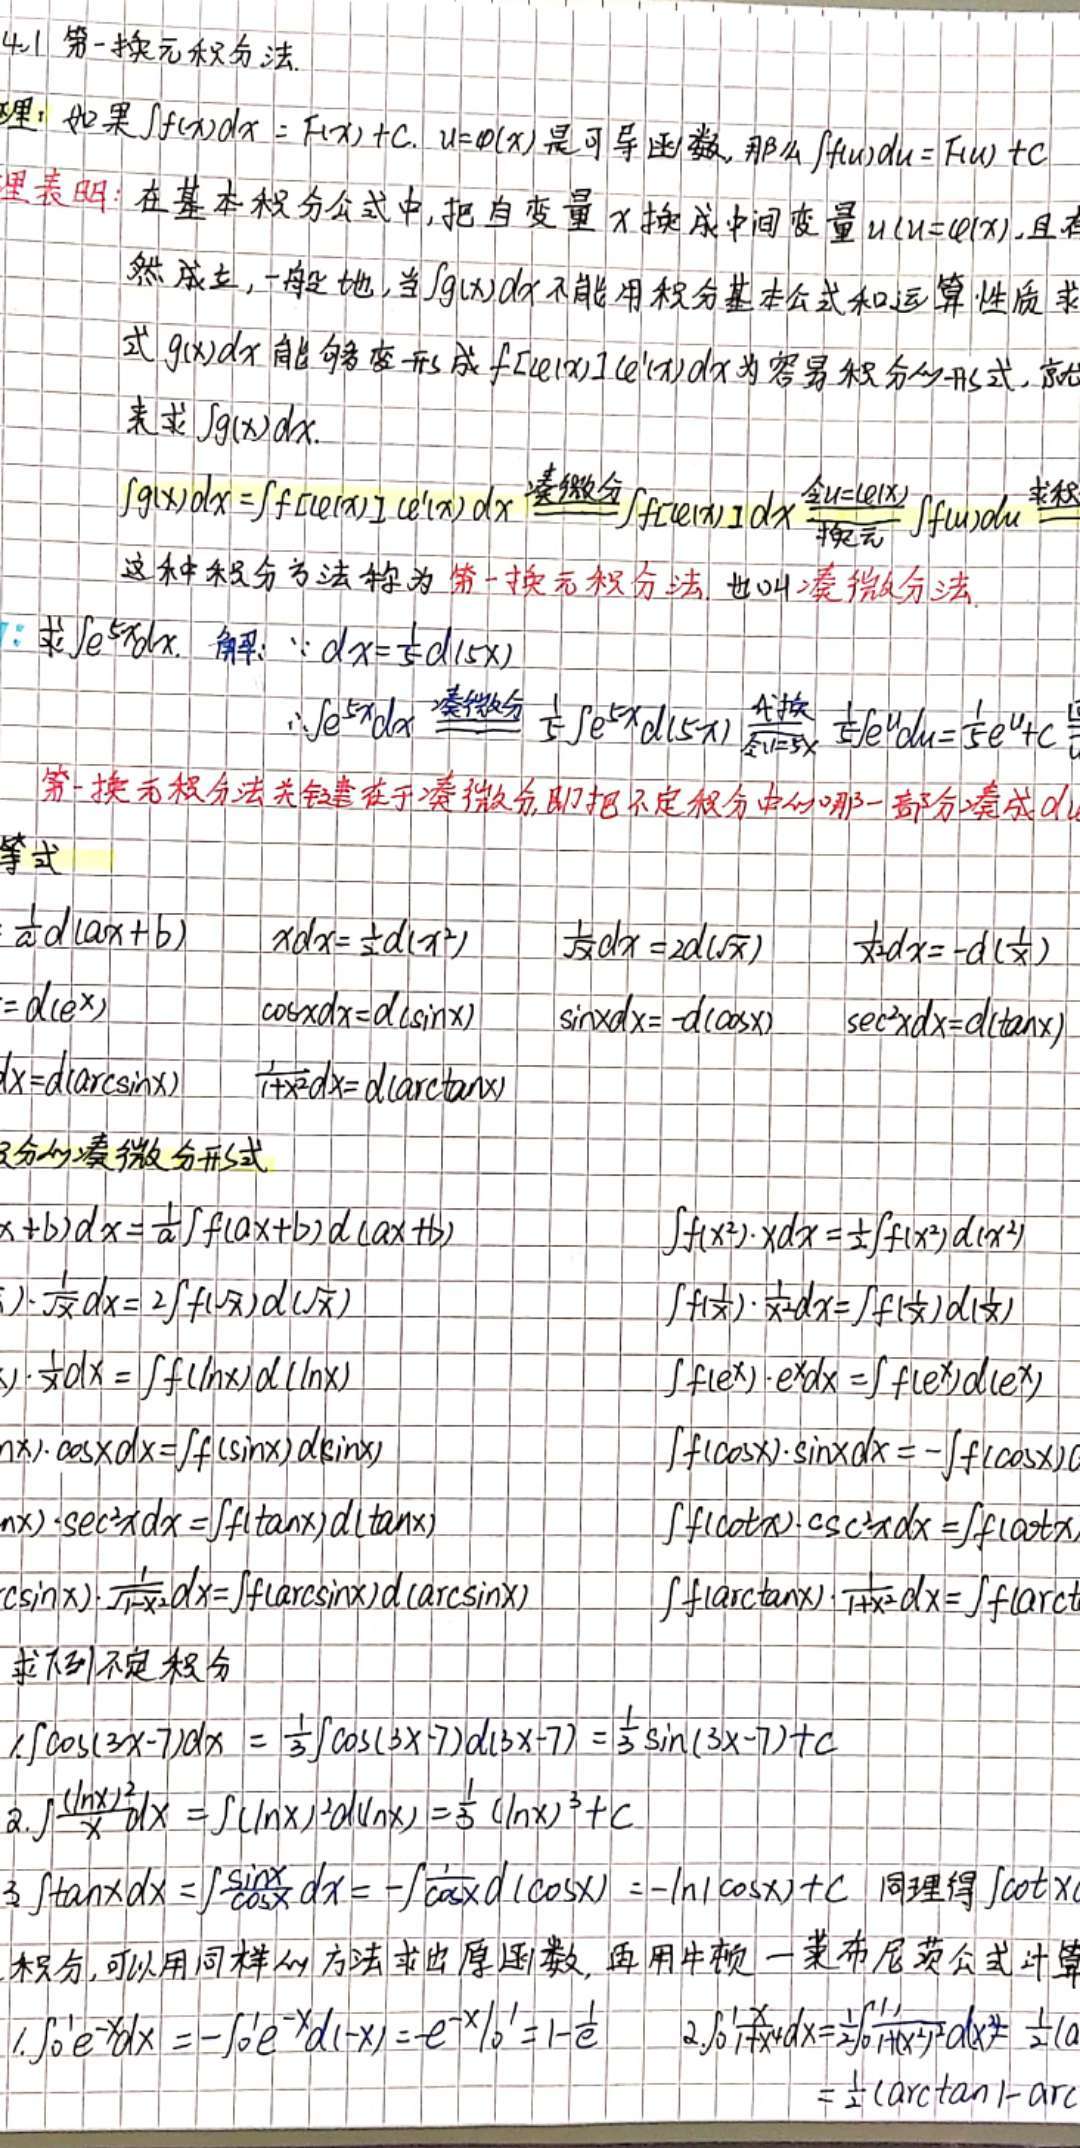 4.1 第一换元积分法.
理: 如果∫f(x)dx = F(x)+C. u=φ(x)是可导函数, 那么∫f(u)du = F(u)+C
理表明: 在基本积分公式中,把自变量x换成中间变量u(u=φ(x),且有
然成立,一般地,当∫g(x)dx不能用积分基本公式和运算性质求
式g(x)dx能够变形成f[φ(x)]φ'(x)dx为容易积分的形式,就
来求∫g(x)dx.
∫g(x)dx=∫f[φ(x)]φ'(x)dx 凑微分 ∫f[φ(x)]dx 令u=φ(x) 换元 ∫f(u)du 求积
这种积分方法称为第一换元积分法,也叫凑微分法.
: 求∫e^5x dx. 解: ∵ dx=1/5 d(5x)
∴∫e^5x dx 凑微分 1/5∫e^5x d(5x) 代换 令u=5x 1/5∫e^u du=1/5e^u+C 回
第一换元积分法关键在于凑微分,即把不定积分中的哪一部分凑成du
等式
=1/a d(ax+b) xdx=1/2d(x²) 1/√x dx=2d(√x) 1/x² dx=-d(1/x)
=d(e^x) cosxdx=d(sinx) sinxdx=-d(cosx) sec²xdx=d(tanx)
dx=d(arcsinx) 1/(1+x²) dx=d(arctanx)
分的凑微分形式
x+b)dx=1/a∫f(ax+b)d(ax+b) ∫f(x²)·xdx=1/2∫f(x²)d(x²)
)·1/√x dx=2∫f(√x)d(√x) ∫f(1/x)·1/x² dx=∫f(1/x)d(1/x)
x)·1/x dx=∫f(lnx)d(lnx) ∫f(e^x)·e^x dx=∫f(e^x)d(e^x)
nx)·cosxdx=∫f(sinx)d(sinx) ∫f(cosx)·sinxdx=-∫f(cosx)
nx)·sec²xdx=∫f(tanx)d(tanx) ∫f(cotx)·csc²xdx=∫f(cotx)
csinx)·1/√(1-x²) dx=∫f(arcsinx)d(arcsinx) ∫f(arctanx)·1/(1+x²) dx=∫f(arct
求下列不定积分
1.∫cos(3x-7)dx = 1/3∫cos(3x-7)d(3x-7)=1/3 sin(3x-7)+C
2.∫(lnx)²/x dx =∫(lnx)²d(lnx)=1/3(lnx)³+C
3.∫tanxdx=∫sinx/cosx dx=-∫1/cosx d(cosx) =-ln|cosx|+C 同理得∫cotx
积分,可以用同样的方法求出原函数,再用牛顿一莱布尼茨公式计算
1.∫₀¹e^-x dx =-∫₀¹e^-x d(-x)=-e^-x|₀¹=1-1/e 2.∫₀¹ x/(1+x⁴) dx=1/2∫₀¹ 1/(1+(x²)²) d(x²)= 1/2(a
=1/2(arctan1-arc